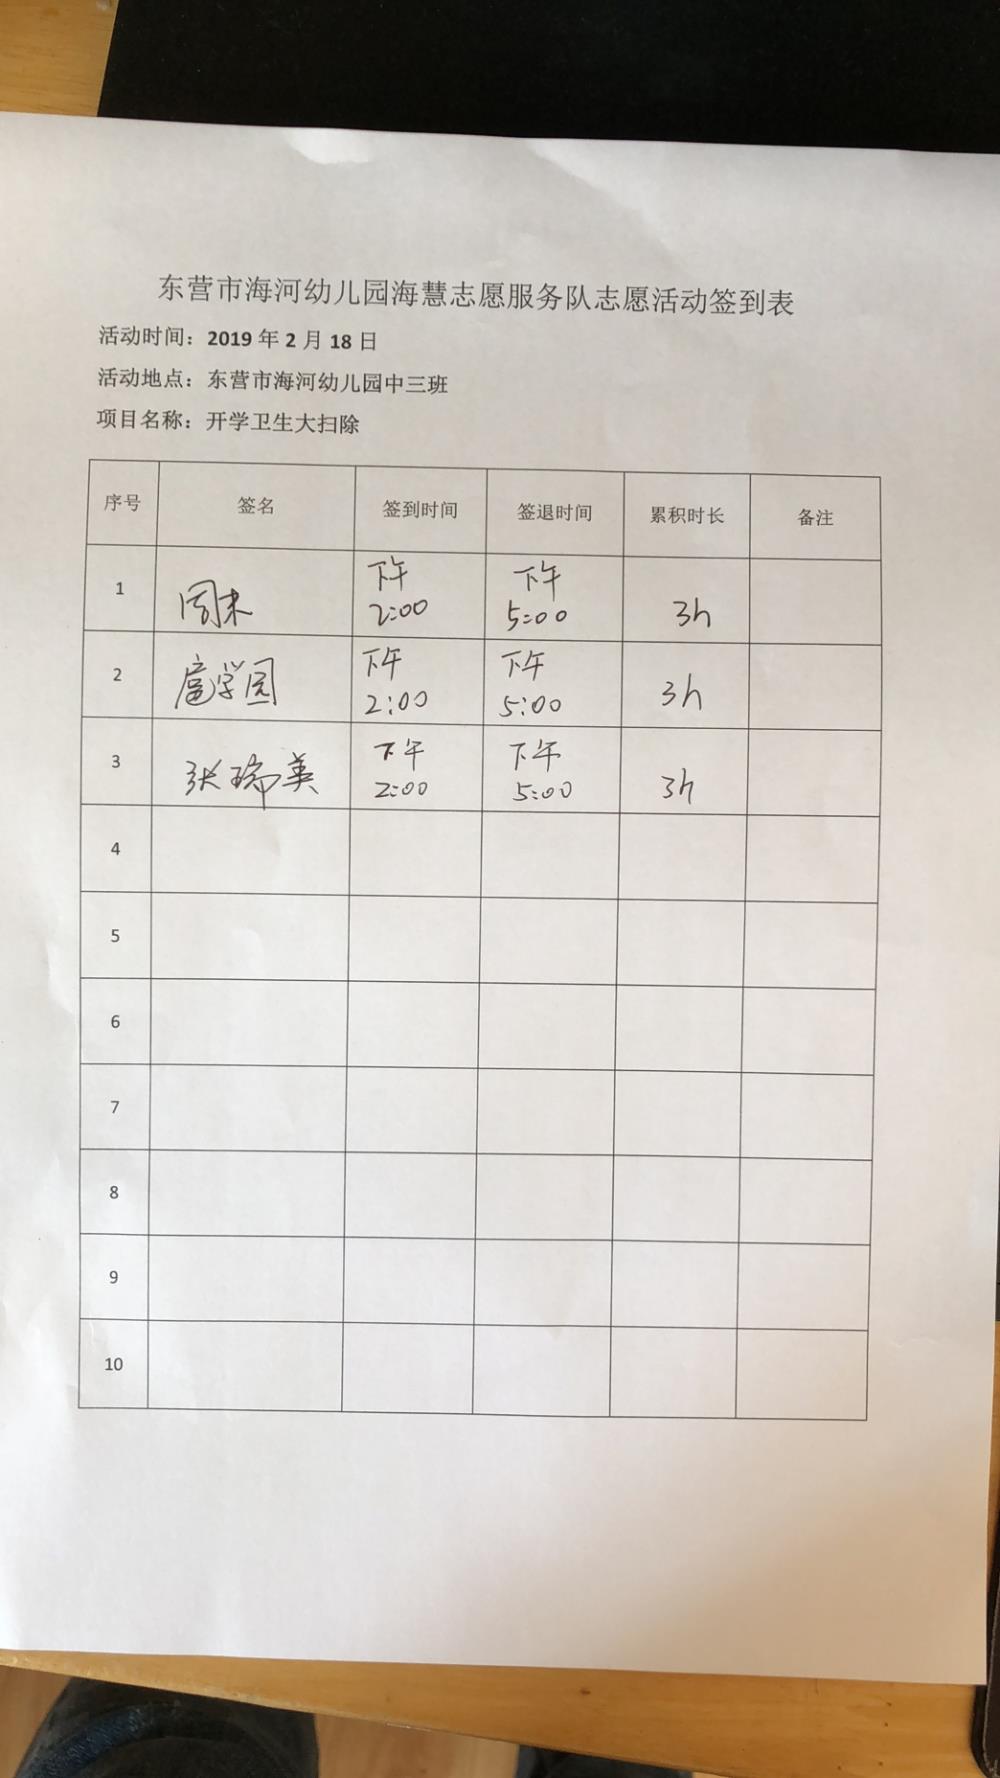 东营市海河幼儿园海慧志愿服务队志愿活动签到表
活动时间：2019 年 2 月 18 日
活动地点：东营市海河幼儿园中三班
项目名称：开学卫生大扫除
序号 签名 签到时间 签退时间 累积时长 备注
1 周末 下午 2:00 下午 5:00 3h
2 扈学园 下午 2:00 下午 5:00 3h
3 张瑞英 下午 2:00 下午 5:00 3h
4
5
6
7
8
9
10